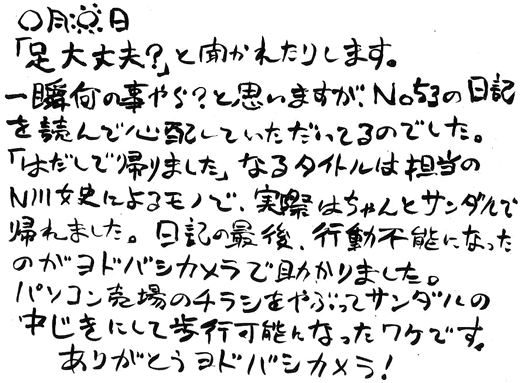 〇月〇日
「足大丈夫?」と聞かれたりします。
一瞬何の事やら?と思いますが、No53の日記
を読んで心配していただいてるのでした。
「はだしで帰りました」なるタイトルは担当の
N川女史によるモノで、実際はちゃんとサンダルで
帰れました。日記の最後、行動不能になった
のがヨドバシカメラで助かりました。
パソコン売場のチラシをやぶってサンダルの
中じきにして歩行可能になったワケです。
ありがとうヨドバシカメラ!